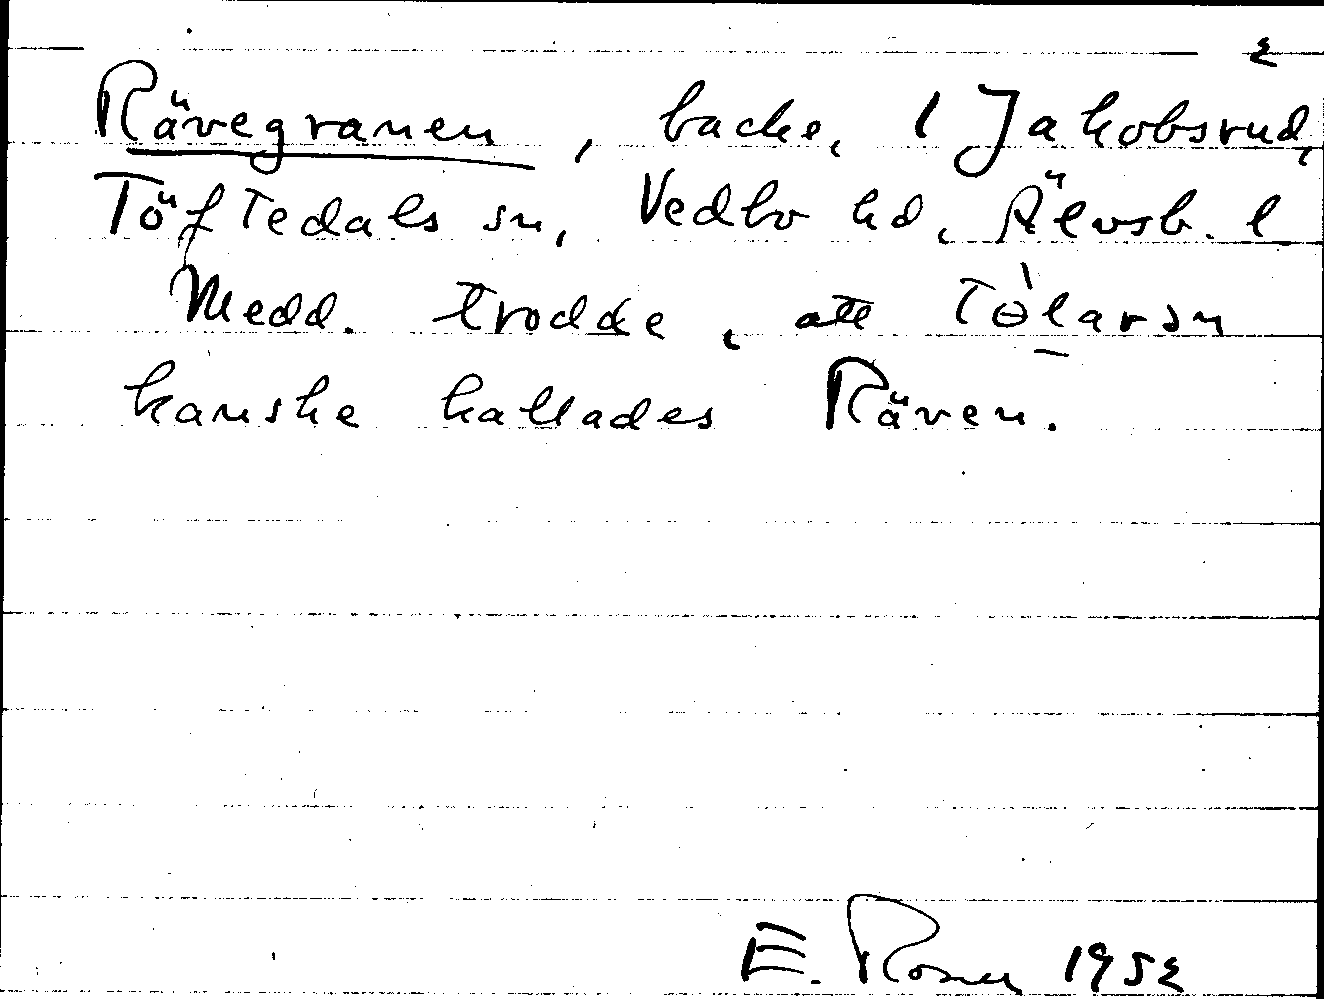 2
Rävegranen, backe, 1 Jakobsrud,
Töftedals sn, Vedbo hd, Älvsb. l
Medd. trodde, att Tölarsn
kanske kallades Räven.
E. Rosell 1952